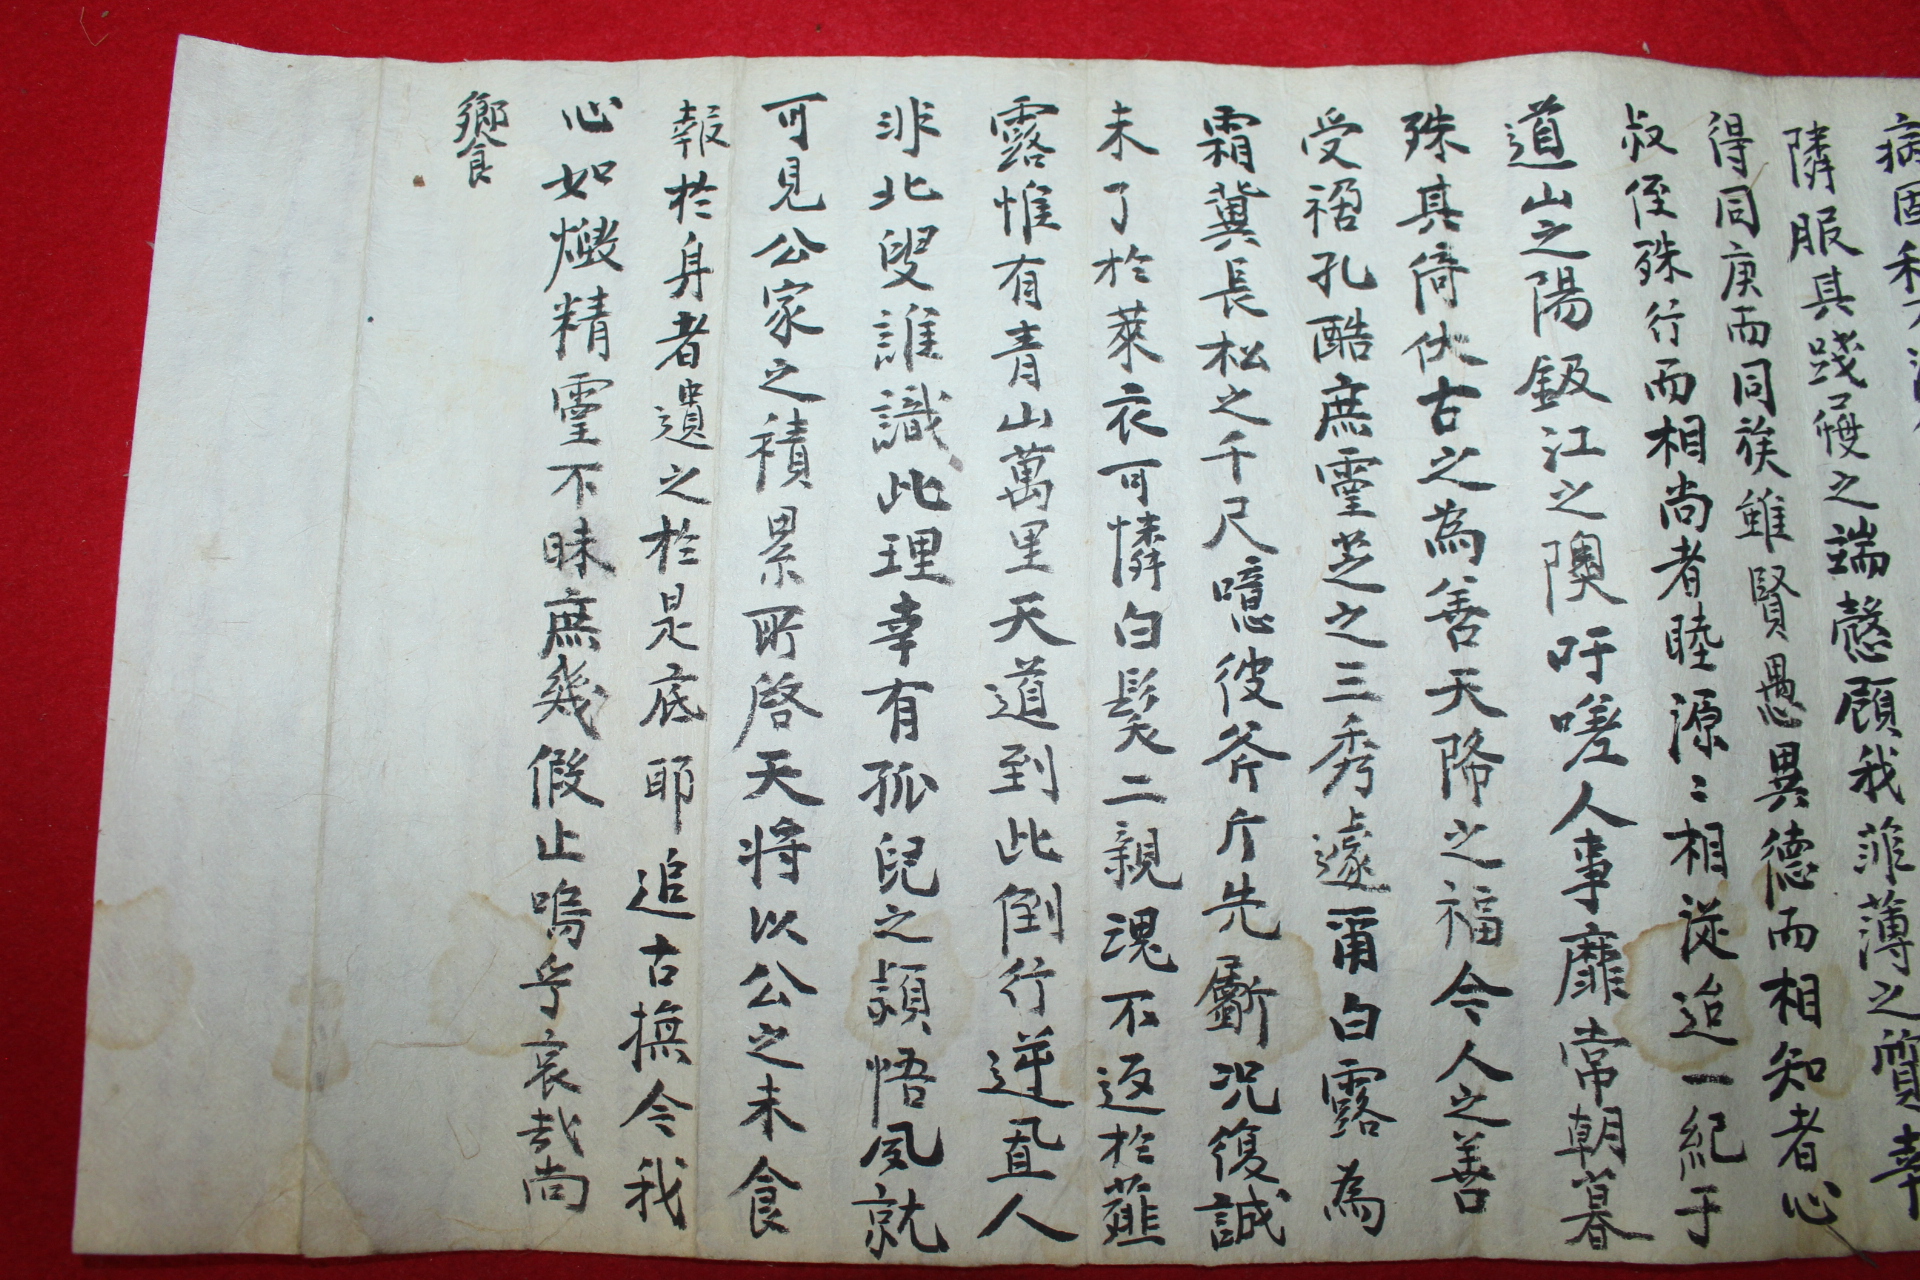 病固利
隣服具踐履之端慤顧我菲薄之質幸
得同庚而同族雖賢愚異德而相知者心
叔侄殊行而相尚者睦源〻相從迨一紀于
道山之陽鈒江之隩吁嗟人事靡常朝暮
殊其倚伏古之為善天降之福今人之善
受禍孔酷庶靈芝之三秀遽爾白露為
霜冀長松之千尺噫彼斧斤先斸況復誠
未了於萊衣可憐白髮二親魂不返於薤
露惟有青山萬里天道到此倒行逆直人
非北叟誰識此理幸有孤兒之頴悟夙就
可見公家之積累所啓天將以公之未食
報於身者遺之於是底耶追古撫今我
心如燬精靈不昧庶幾假止嗚乎哀哉尚
饗